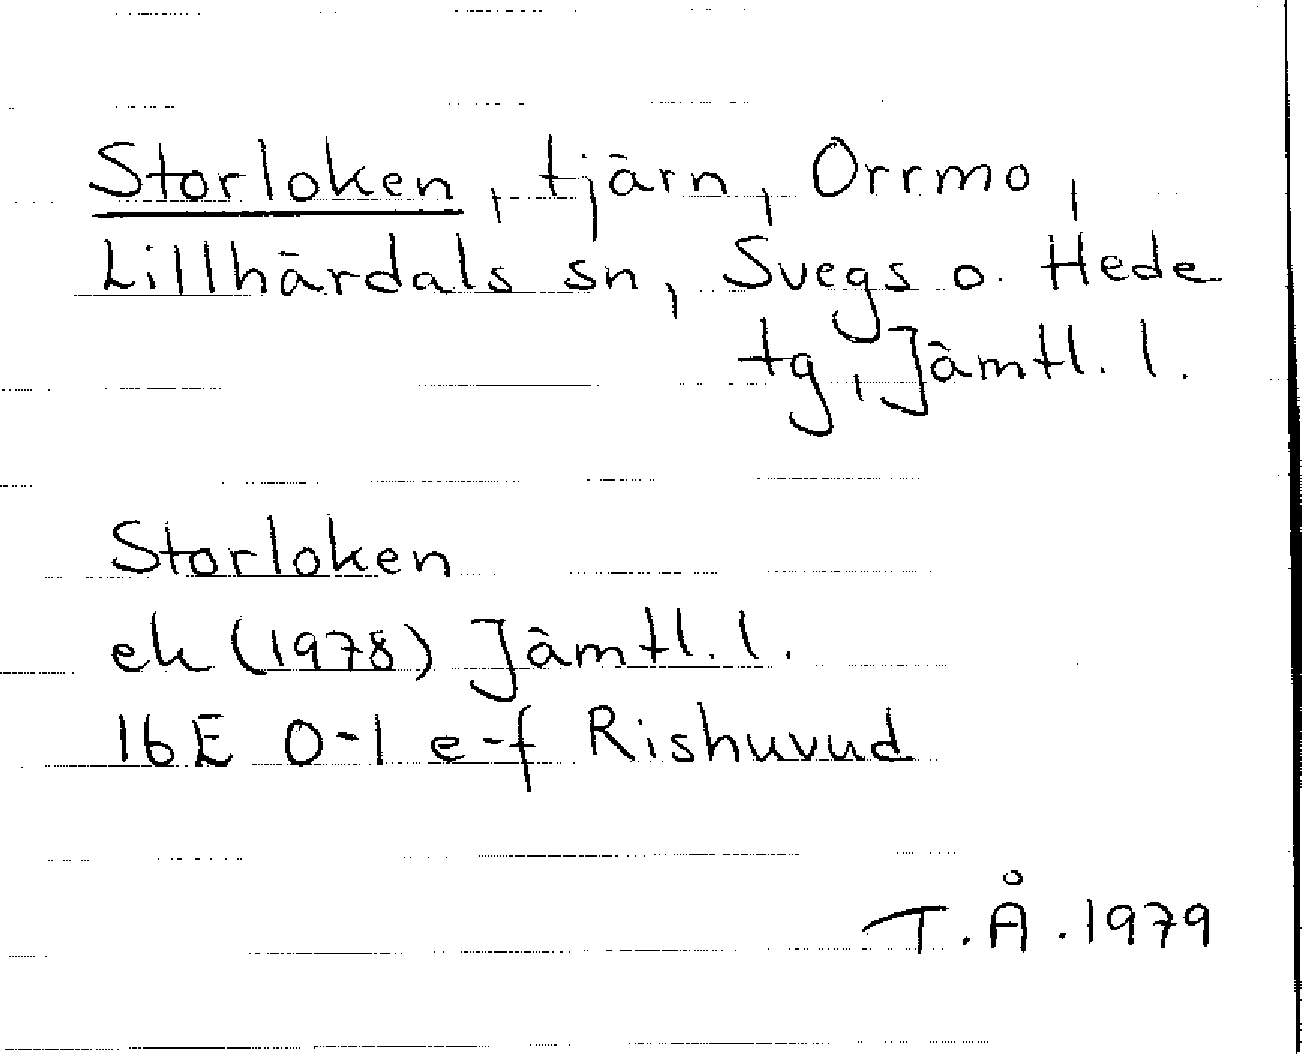 Storloken, tjärn, Orrmo,
Lillhärdals sn, Svegs o. Hede
tg, Jämtl. l.
Storloken
ek (1978) Jämtl. l.
16E 0-1 e-f Rishuvud
T.Å. 1979